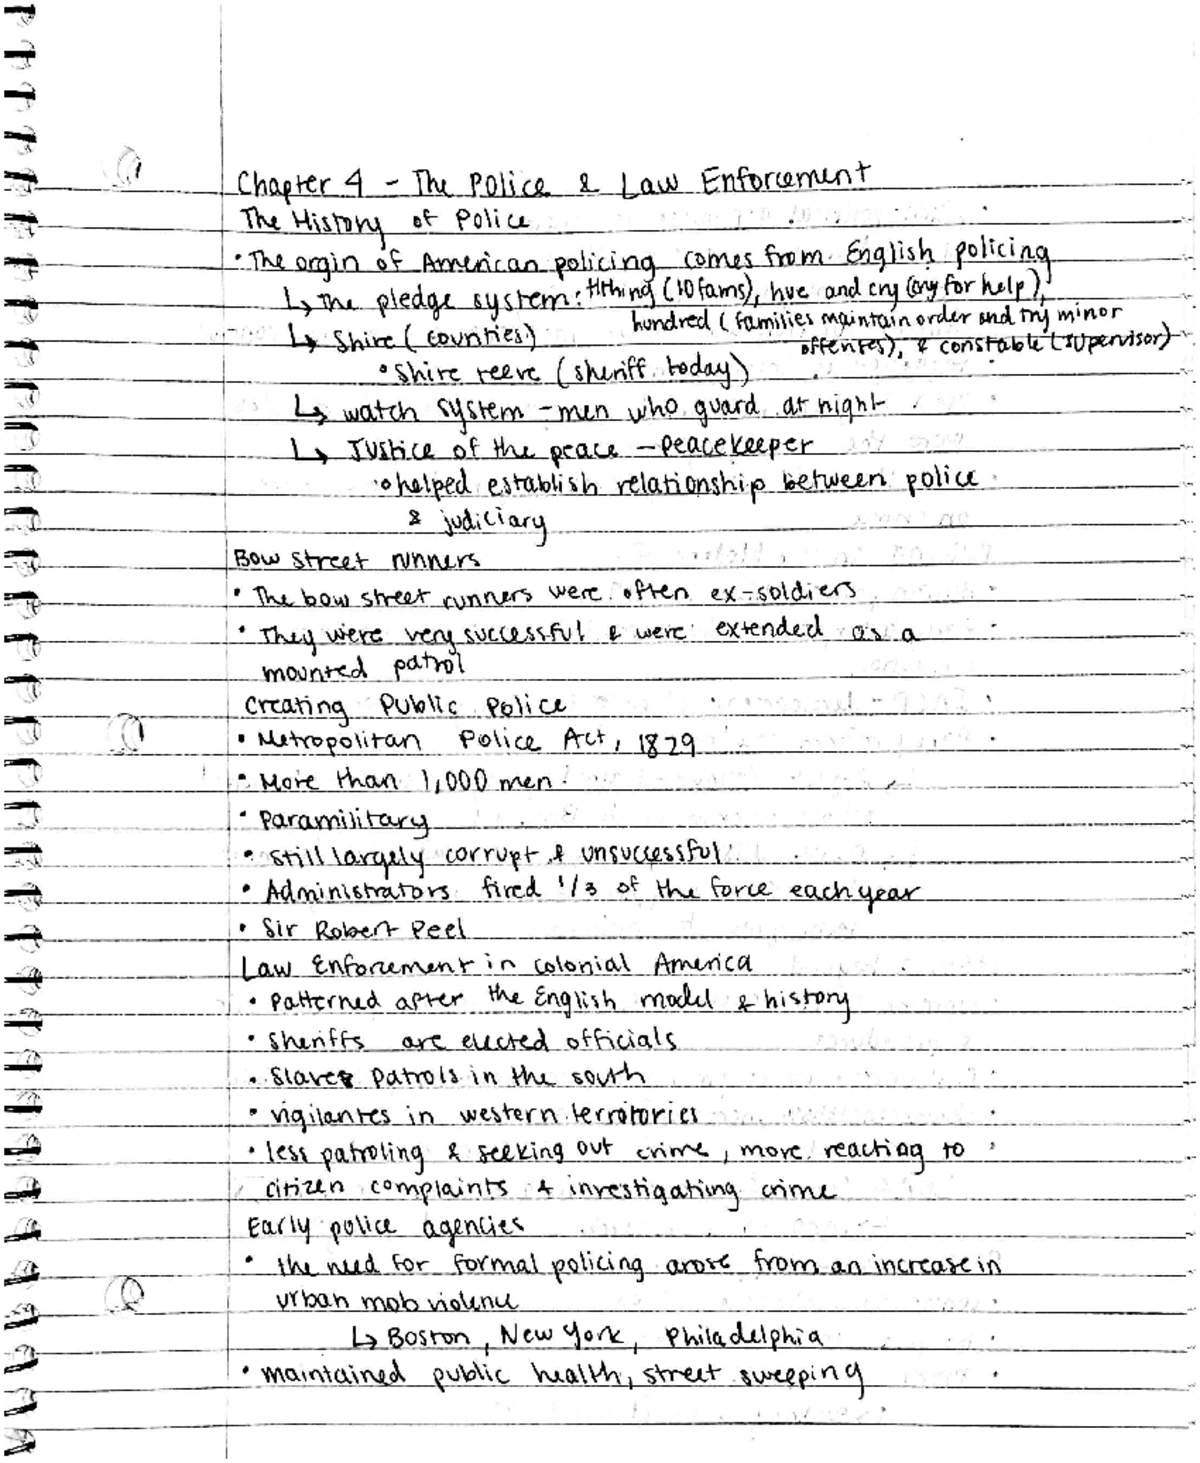 Chapter 4 - The Police & Law Enforcement
The History of Police
• The orgin of American policing comes from English policing
↳ The pledge system: tithing (10 fams), hue and cry (cry for help),
hundred (families maintain order and try minor
offenses), & constable (supervisor)
↳ Shire (counties)
• Shire reeve (sheriff today)
↳ watch system - men who guard at night
↳ Justice of the peace - peacekeeper
• helped establish relationship between police
& judiciary
Bow Street runners
• The bow street runners were often ex-soldiers
• They were very successful & were extended as a
mounted patrol
Creating Public Police
• Metropolitan Police Act, 1829
• More than 1,000 men
• Paramilitary
• Still largely corrupt & unsuccessful
• Administrators fired 1/3 of the force each year
• Sir Robert Peel
Law Enforcement in colonial America
• Patterned after the English model & history
• Sheriffs are elected officials
• Slaves patrols in the south
• vigilantes in western terrotories
• less patroling & seeking out crime, more reacting to
citizen complaints & investigatiing crime
Early police agencies
• the need for formal policing arose from an increase in
urban mob violence
↳ Boston, New York, Philadelphia
• maintained public health, street sweeping